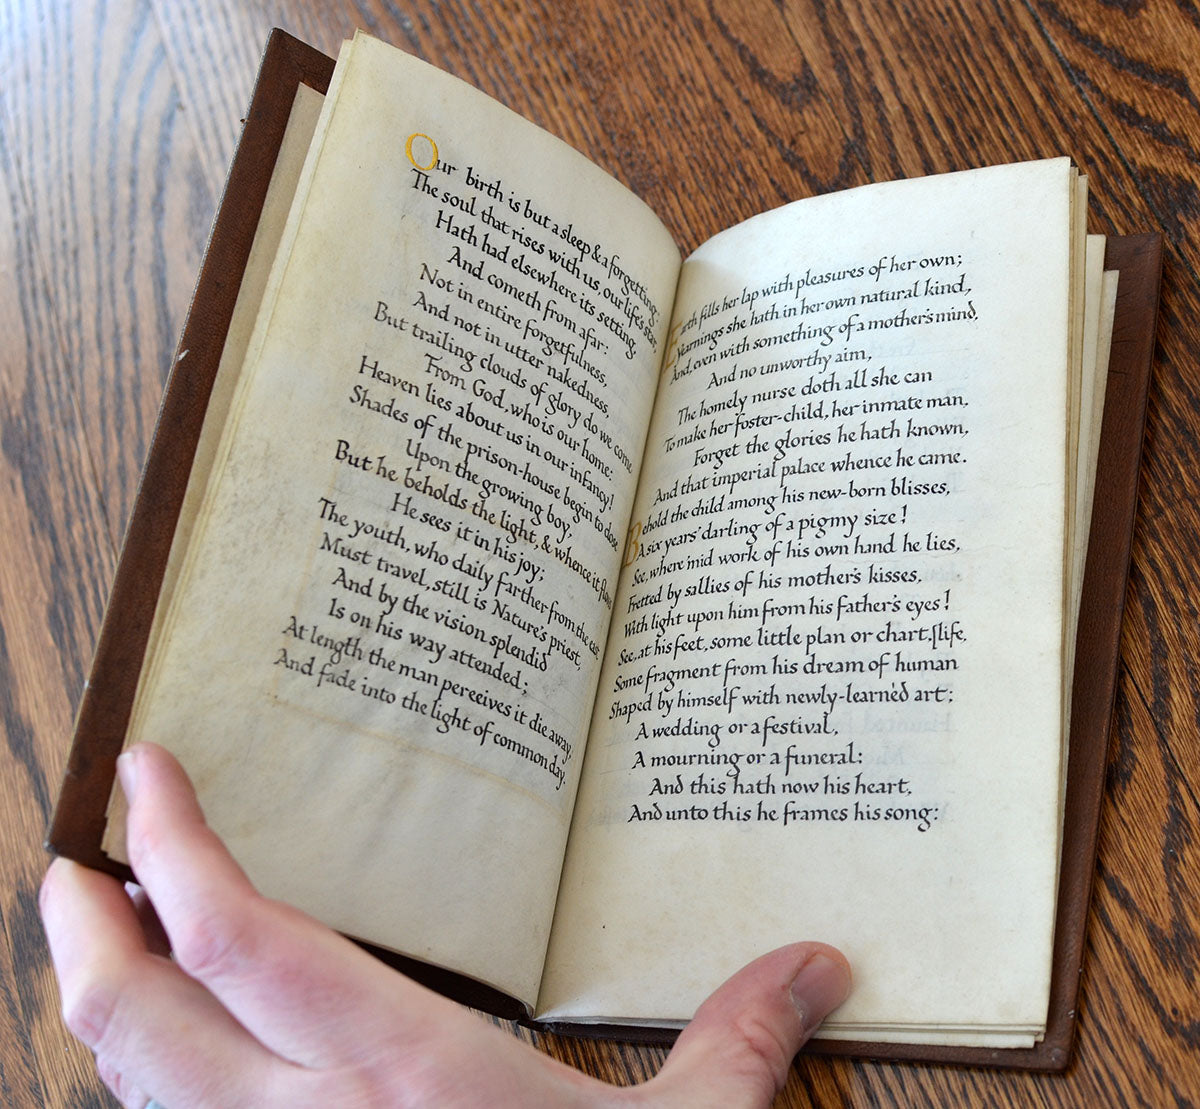 Our birth is but a sleep & a forgetting:
The soul that rises with us, our life's star,
Hath had elsewhere its setting,
And cometh from afar:
Not in entire forgetfulness,
And not in utter nakedness,
But trailing clouds of glory do we come
From God, who is our home:
Heaven lies about us in our infancy!
Shades of the prison-house begin to close
Upon the growing boy,
But he beholds the light, & whence it flows
He sees it in his joy;
The youth, who daily farther from the east
Must travel, still is Nature's priest,
And by the vision splendid
Is on his way attended;
At length the man perceives it die away,
And fade into the light of common day.
Earth fills her lap with pleasures of her own;
Yearnings she hath in her own natural kind,
And, even with something of a mother's mind,
And no unworthy aim,
The homely nurse doth all she can
To make her foster-child, her inmate man,
Forget the glories he hath known,
And that imperial palace whence he came.
Behold the child among his new-born blisses,
A six years' darling of a pigmy size!
See, where 'mid work of his own hand he lies,
Fretted by sallies of his mother's kisses,
With light upon him from his father's eyes!
See, at his feet, some little plan or chart, [life,
Some fragment from his dream of human
Shaped by himself with newly-learnèd art:
A wedding or a festival,
A mourning or a funeral:
And this hath now his heart,
And unto this he frames his song: